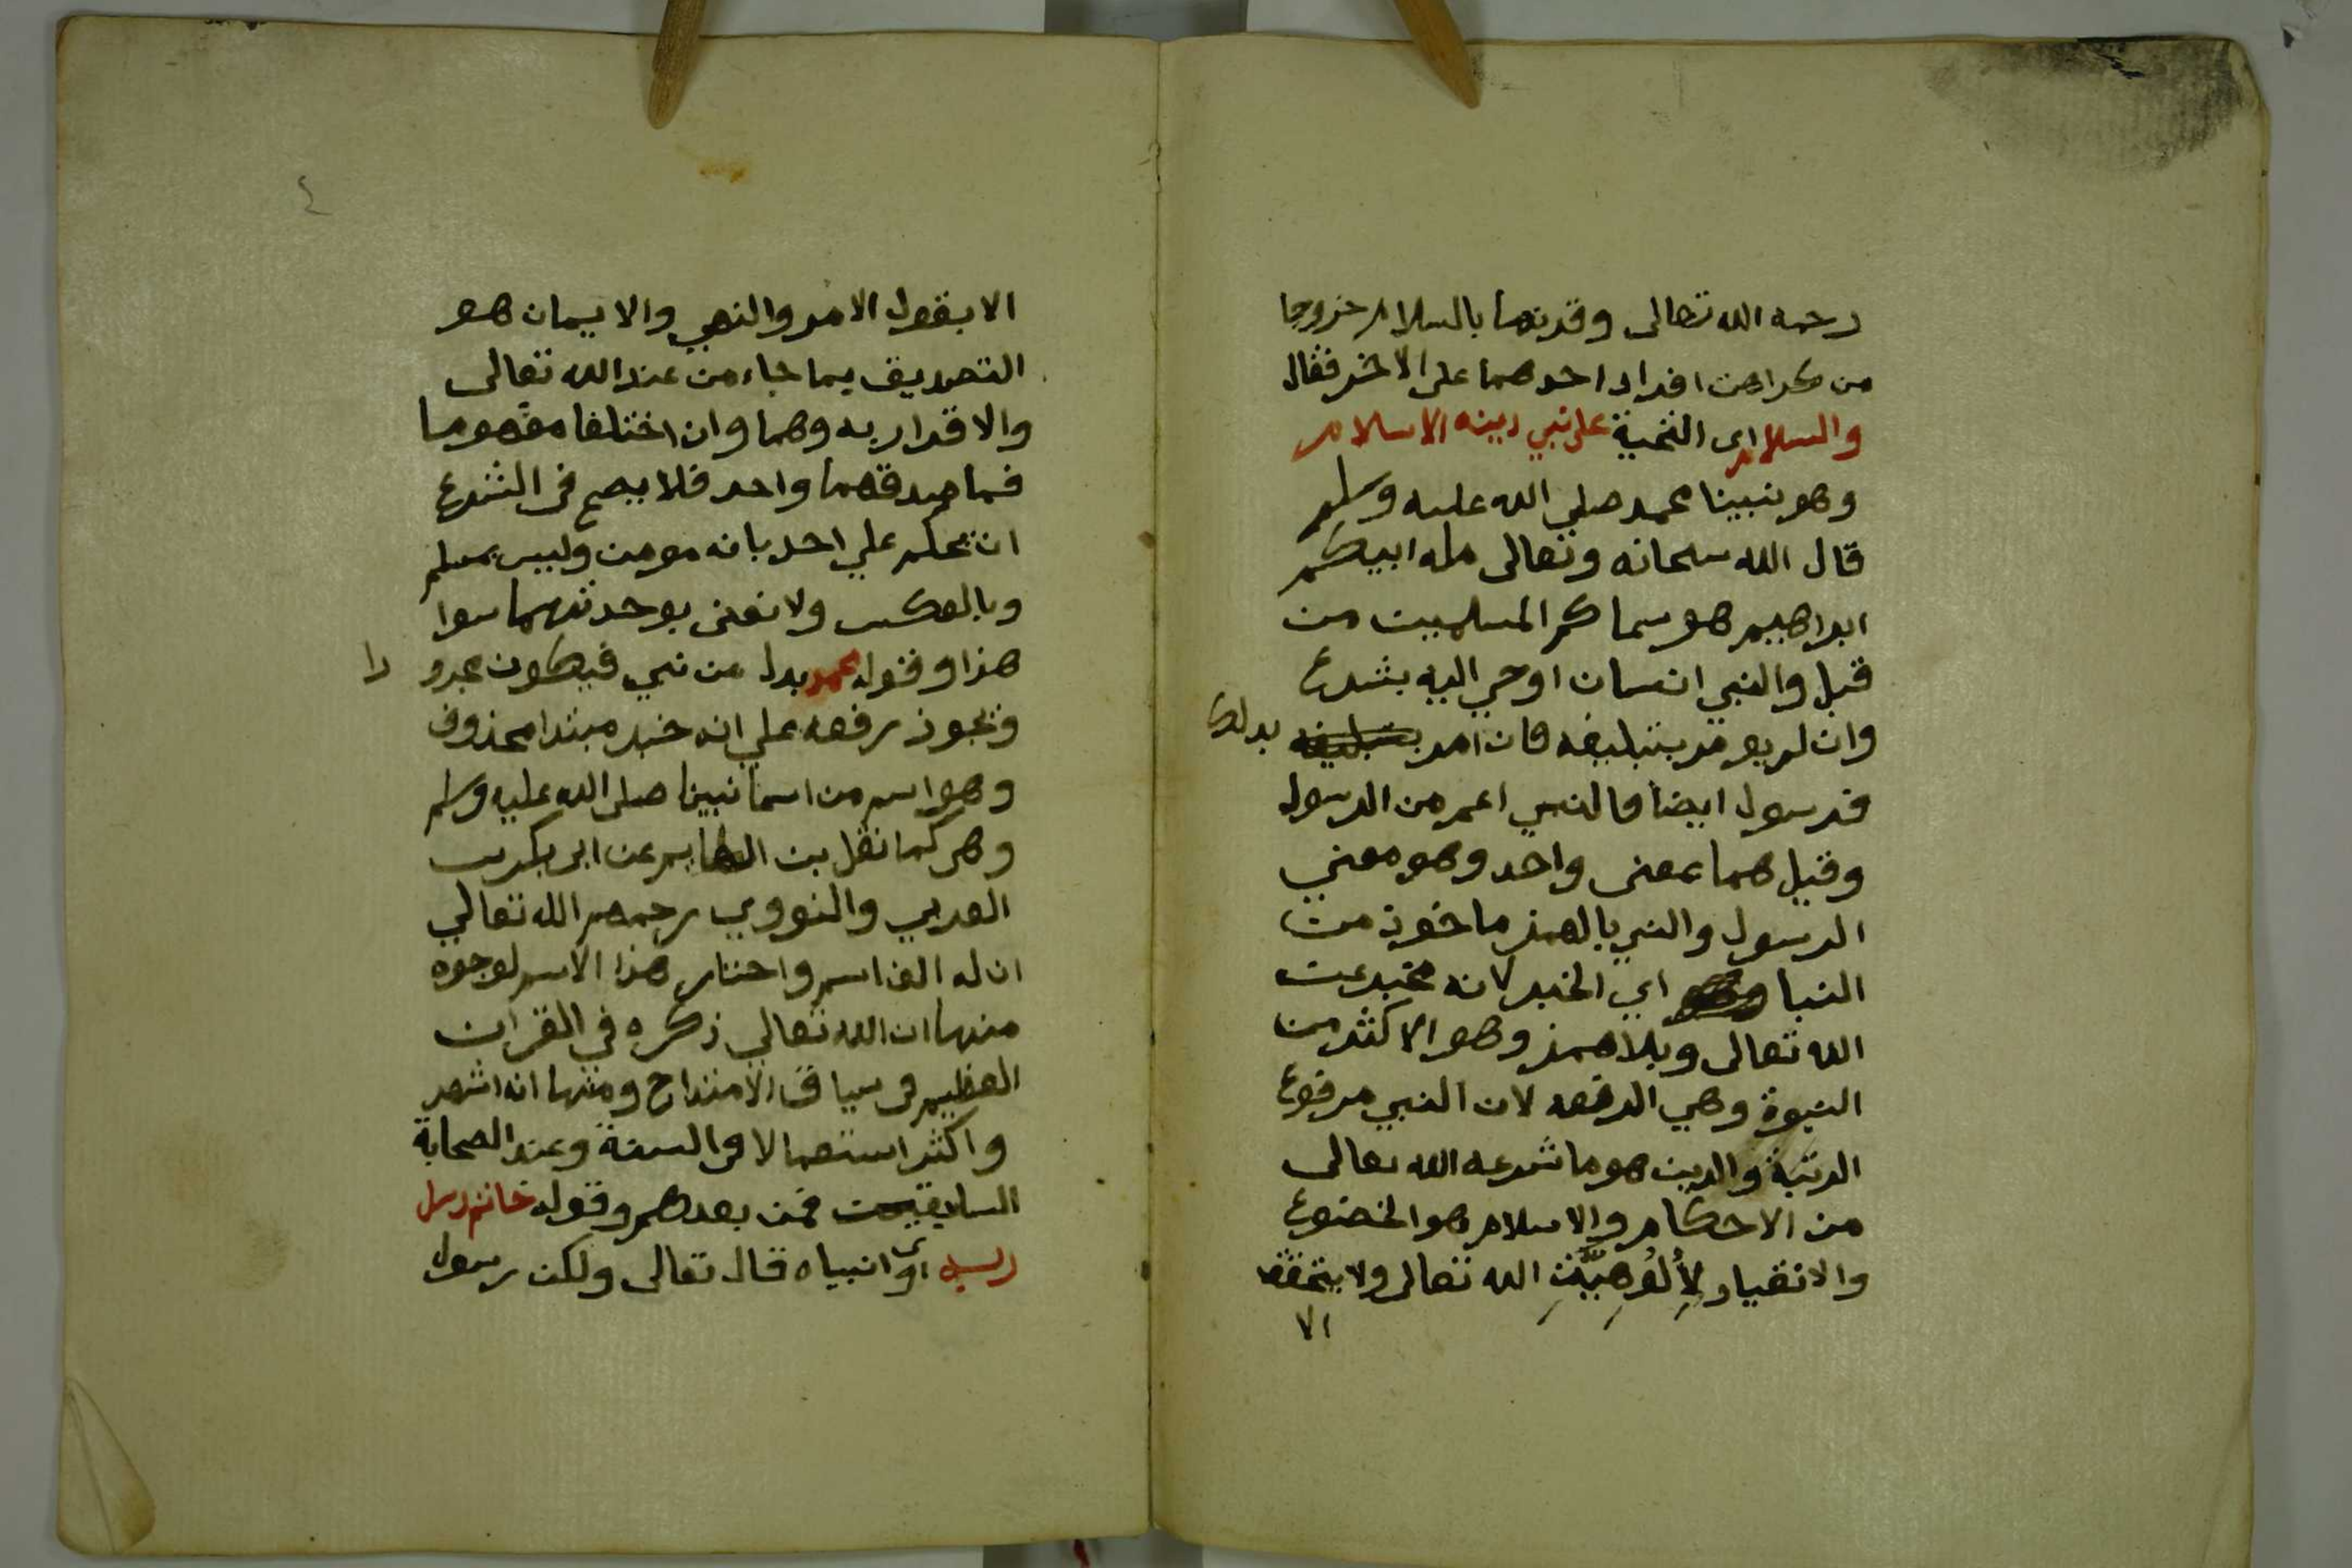 رحمه الله تعالى وقرنها بالسلام خروجا
من كراهت افراد احدهما على الاخر فقال
والسلام اى التحية على نبي دينه الاسلام
وهو نبينا محمد صلي الله عليه وسلم
قال الله سبحانه وتعالى مله ابيكم
ابراهيم هو سماكم المسلمين من
قبل والنبي انسان اوحي اليه بشرع
وان لم يومر بتبليغه فان امر بتبليغه بدلك
فرسول ايضا فالنبي اعم من الرسول
وقيل هما بمعنى واحد وهو معني
الرسول والنبي بالهمز ماخوذ من
النبا اي الخبر لانه مخبر عن
الله تعالى وبلا همز وهو الاكثر من
النبوة وهي الرفعه لان النبي مرفوع
الرتبة والدين هو ما شرعه الله تعالى
من الاحكام والاسلام هو الخضوع
والانقياد لِأُلُوهِيَّتِ الله تعالى ولا يتحقق
الا
٤
الا بقول الامر والنهي والايمان هو
التصديق بما جاء من عند الله تعالى
والاقرار به وهما وان اختلفا مفهوما
فما صدقهما واحد فلا يصح في الشرع
ان يحكم علي احد بانه مومن وليس بمسلم
وبالعكس ولا نعنى بوحدتهما سوا
هذا وقوله محمد بدل من نبي فيكون مجرو را
ويجوز رفعه علي انه خبر مبتدا محذوف
وهو اسم من اسما نبينا صلى الله عليه وسلم
وهي كما نقل بن الهايم عن ابى بكر بن
العربي والنووي رحمهم الله تعالي
ان له الف اسم واختار هذا الاسم لوجوه
منها ان الله تعالي ذكره في القران
العظيم في سياق الامتداح ومنها انه اشهر
واكثر استعمالا في السنة وعند الصحابة
السابقين فمن بعدهم وقوله خاتم رسل
ربه اى وانبياه قال تعالى ولكن رسول